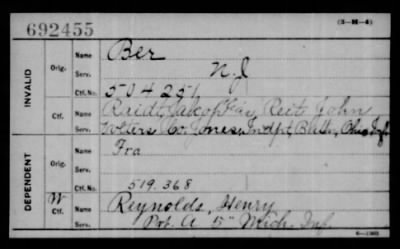 692455
(3—86—a)
INVALID
Orig. Name Ber
Serv. N.J
Ctf. No. 504251
Ctf. Name Raidt, Jacob Reitz John
Serv. Co. Jones, Indpt. Batt, Ohio Inf
DEPENDENT
Orig. Name Fra
Serv.
Ctf. No. 519.368
W
Ctf. Name Reynolds, Henry
Serv. Pvt. A 5" Mich. Inf.
6—1303